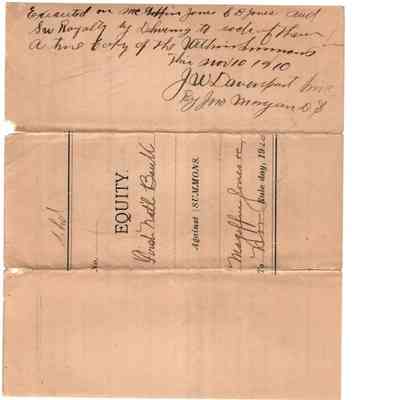 Executed on McGoffin Jones C D Jones and
Sw Royalty by delivering to each of them
A true copy of the Within Summons
this nov 10 1910
J W Davenport
By Jno Morgan D S
No.
EQUITY.
First Natl Bank
Against } SUMMONS.
Magoffin Jones &c
To Rule day, 19